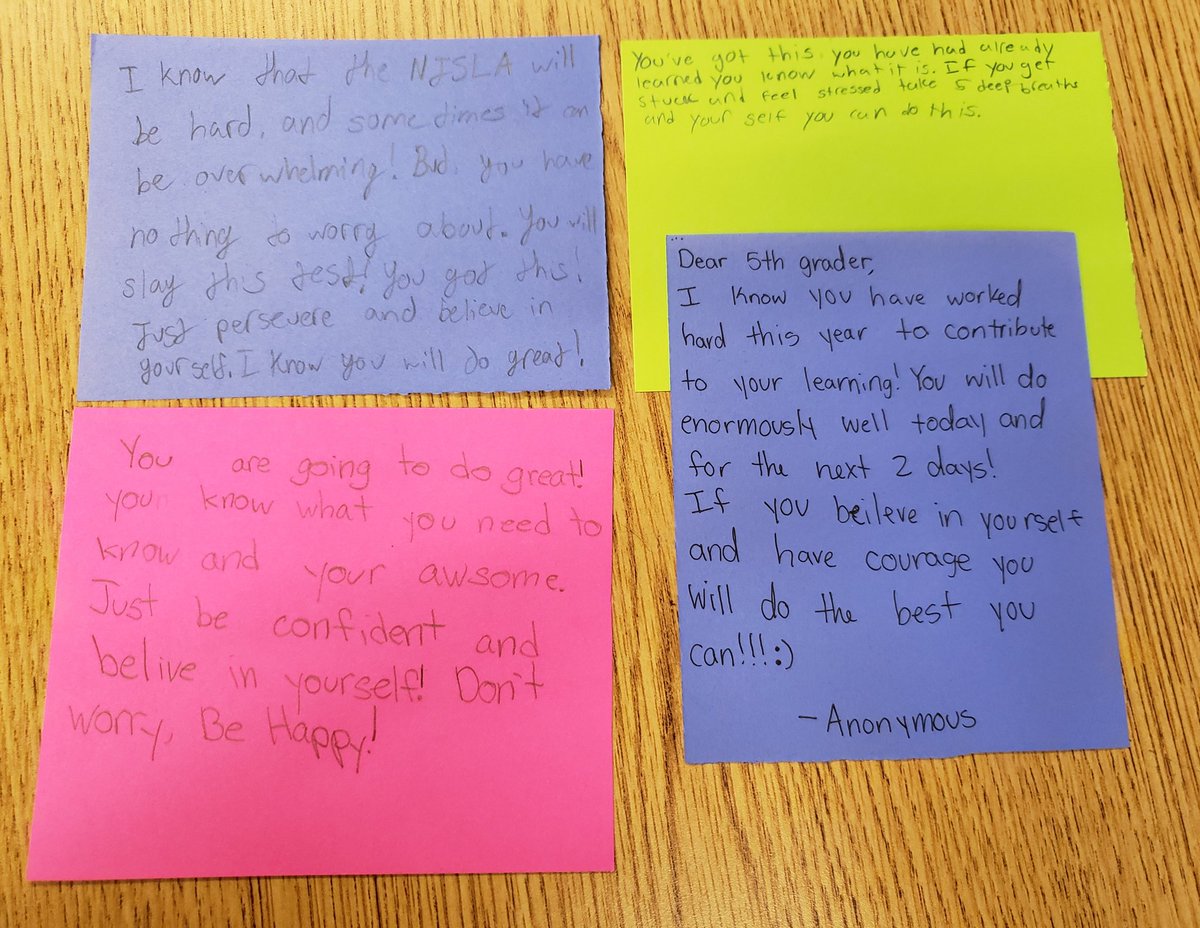 I know that the NJSLA will
be hard, and sometimes it can
be overwhelming! But, you have
nothing to worry about. You will
slay this test! You got this!
Just persevere and believe in
yourself. I know you will do great!
You've got this you have had already
learned you know what it is. If you get
stuck and feel stressed take 5 deep breaths
and your self you can do this.
You are going to do great!
you know what you need to
know and your awsome.
Just be confident and
belive in yourself! Don't
worry, Be Happy!
Dear 5th grader,
I know you have worked
hard this year to contribute
to your learning! You will do
enormously well today and
for the next 2 days!
If you beileve in yourself
and have courage you
will do the best you
can!!!:)
-Anonymous